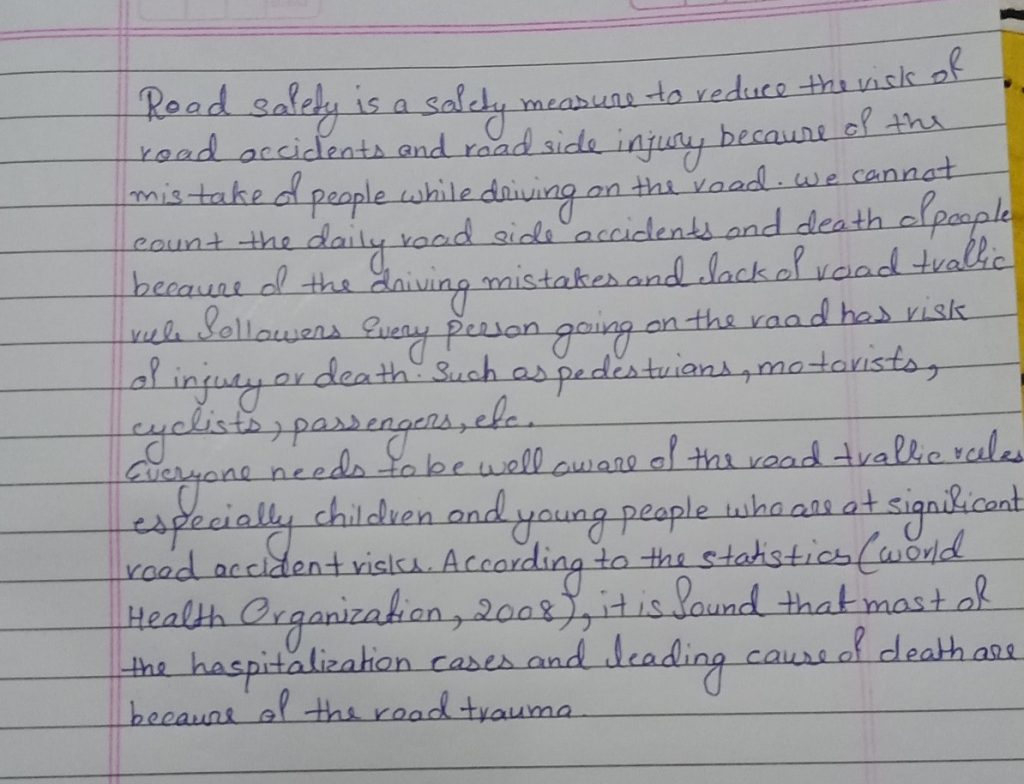 Road safety is a safety measure to reduce the risk of
road accidents and road side injury because of the
mistake of people while driving on the road. we cannot
count the daily road side accidents and death of people
because of the driving mistakes and lack of road traffic
rule followers Every person going on the road has risk
of injury or death. Such as pedestrians, motorists,
cyclists, passengers, etc.
Everyone needs to be well aware of the road traffic rules
especially children and young people who are at significant
road accident risks. According to the statistics (world
Health Organization, 2008), it is found that most of
the hospitalization cases and leading cause of death are
because of the road trauma.